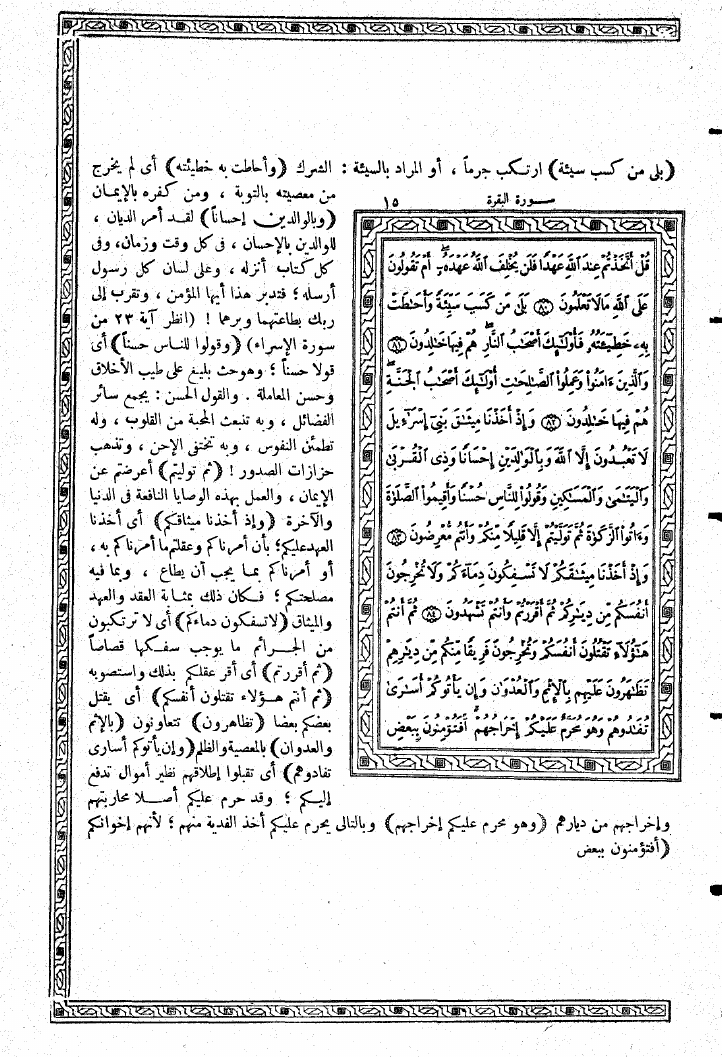 (بلى من كسب سيئة) ارتكب جرماً ، أو المراد بالسيئة : الشرك (وأحاطت به خطيئته) أى لم يخرج
من معصيته بالتوبة ، ومن كفره بالإيمان
(وبالوالدين إحساناً) لقد أمر الديان ،
للوالدين بالإحسان ، فى كل وقت وزمان، وفى
كل كتاب أنزله ، وعلى لسان كل رسول
أرسله ؛ فتدبر هذا أيها المؤمن ، وتقرب إلى
ربك بطاعتهما وبرهما ! (انظر آية ٢٣ من
سورة الإسراء) (وقولوا للناس حسناً) أى
قولا حسناً ؛ وهو حث بليغ على طيب الأخلاق
وحسن المعاملة . والقول الحسن : يجمع سائر
الفضائل ، وبه تنبعث المحبة من القلوب ، وله
تطمئن النفوس ، وبه تختفى الإحن ، وتذهب
حزازات الصدور ! (ثم توليتم) أعرضتم عن
الإيمان ، والعمل بهذه الوصايا النافعة فى الدنيا
والآخرة (وإذ أخذنا ميثاقكم) أى أخذنا
العهد عليكم؛ بأن أمرناكم وعقلتم ما أمرناكم به ،
أو أمرناكم بما يجب أن يطاع ، وبما فيه
مصلحتكم ؛ فكان ذلك بمثابة العقد والعهد
والميثاق (لا تسفكون دماءكم) أى لا ترتكبون
من الجرائم ما يوجب سفكها قصاصاً
(ثم أقررتم) أى أقر عقلكم بذلك واستصوبه
(ثم أنتم هؤلاء تقتلون أنفسكم) أى يقتل
بعضكم بعضا (تظاهرون) تتعاونون (بالإثم
والعدوان) بالمعصية والظلم (وإن يأتوكم أسارى
تفادوهم) أى تقبلوا إطلاقهم نظير أموال تدفع
إليكم ؛ وقد حرم عليكم أصلا محاربتهم
سورة البقرة ١٥
قُلْ أَتَّخَذْتُمْ عِندَ اللَّهِ عَهْدًا فَلَن يُخْلِفَ اللَّهُ عَهْدَهُۥٓ أَمْ تَقُولُونَ
عَلَى اللَّهِ مَا لَا تَعْلَمُونَ ٨٠ بَلَىٰ مَن كَسَبَ سَيِّئَةً وَأَحَاطَتْ
بِهِۦ خَطِيٓئَتُهُۥ فَأُولَٰٓئِكَ أَصْحَٰبُ النَّارِ هُمْ فِيهَا خَٰلِدُونَ ٨١
وَالَّذِينَ ءَامَنُوا وَعَمِلُوا الصَّٰلِحَٰتِ أُولَٰٓئِكَ أَصْحَٰبُ الْجَنَّةِ
هُمْ فِيهَا خَٰلِدُونَ ٨٢ وَإِذْ أَخَذْنَا مِيثَٰقَ بَنِىٓ إِسْرَٰٓءِيلَ
لَا تَعْبُدُونَ إِلَّا اللَّهَ وَبِالْوَٰلِدَيْنِ إِحْسَانًا وَذِى الْقُرْبَىٰ
وَالْيَتَٰمَىٰ وَالْمَسَٰكِينِ وَقُولُوا لِلنَّاسِ حُسْنًا وَأَقِيمُوا الصَّلَوٰةَ
وَءَاتُوا الزَّكَوٰةَ ثُمَّ تَوَلَّيْتُمْ إِلَّا قَلِيلًا مِّنكُمْ وَأَنتُم مُّعْرِضُونَ ٨٣
وَإِذْ أَخَذْنَا مِيثَٰقَكُمْ لَا تَسْفِكُونَ دِمَآءَكُمْ وَلَا تُخْرِجُونَ
أَنفُسَكُم مِّن دِيَٰرِكُمْ ثُمَّ أَقْرَرْتُمْ وَأَنتُمْ تَشْهَدُونَ ٨٤ ثُمَّ أَنتُمْ
هَٰٓؤُلَآءِ تَقْتُلُونَ أَنفُسَكُمْ وَتُخْرِجُونَ فَرِيقًا مِّنكُم مِّن دِيَٰرِهِمْ
تَظَٰهَرُونَ عَلَيْهِم بِالْإِثْمِ وَالْعُدْوَٰنِ وَإِن يَأْتُوكُمْ أُسَٰرَىٰ
تُفَٰدُوهُمْ وَهُوَ مُحَرَّمٌ عَلَيْكُمْ إِخْرَاجُهُمْ أَفَتُؤْمِنُونَ بِبَعْضِ
وإخراجهم من ديارهم (وهو محرم عليكم إخراجهم) وبالتالى يحرم عليكم أخذ الفدية منهم ؛ لأنهم إخوانكم
(أفتؤمنون ببعض